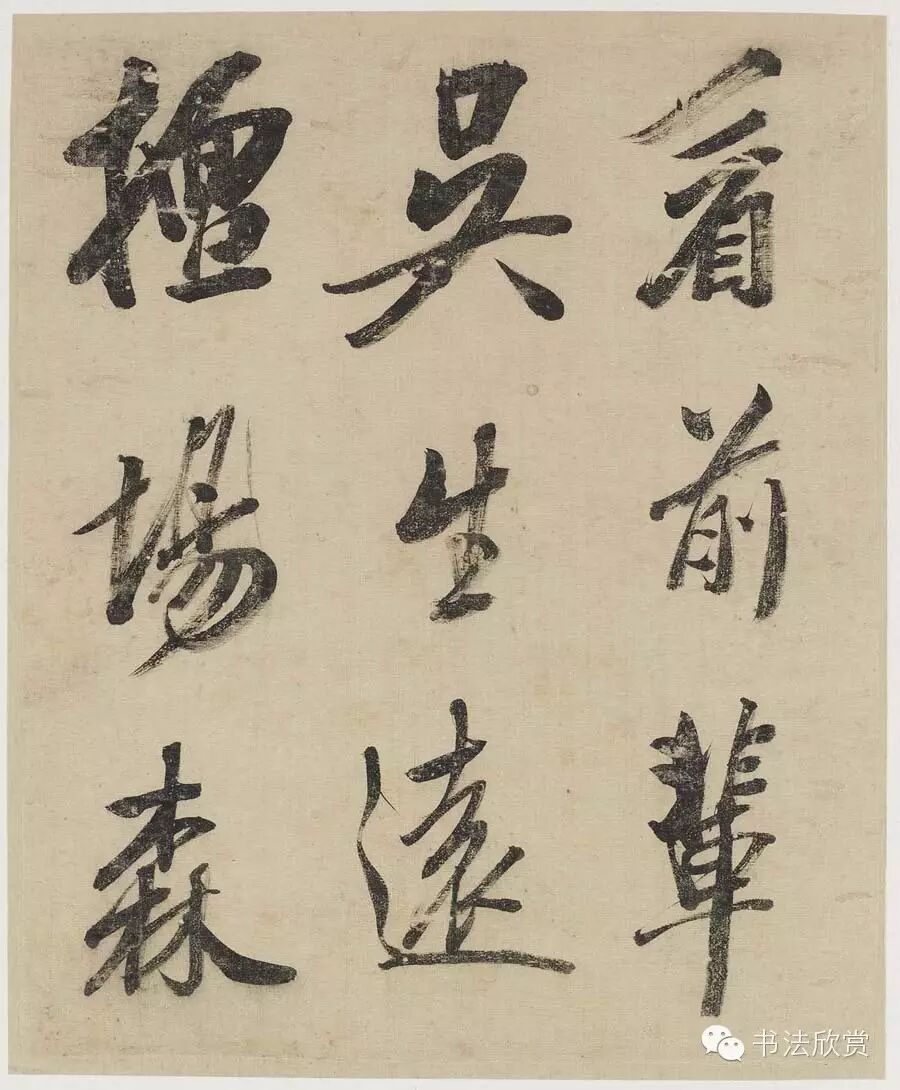 看前輩
吳生遠
擅場森
书法欣赏